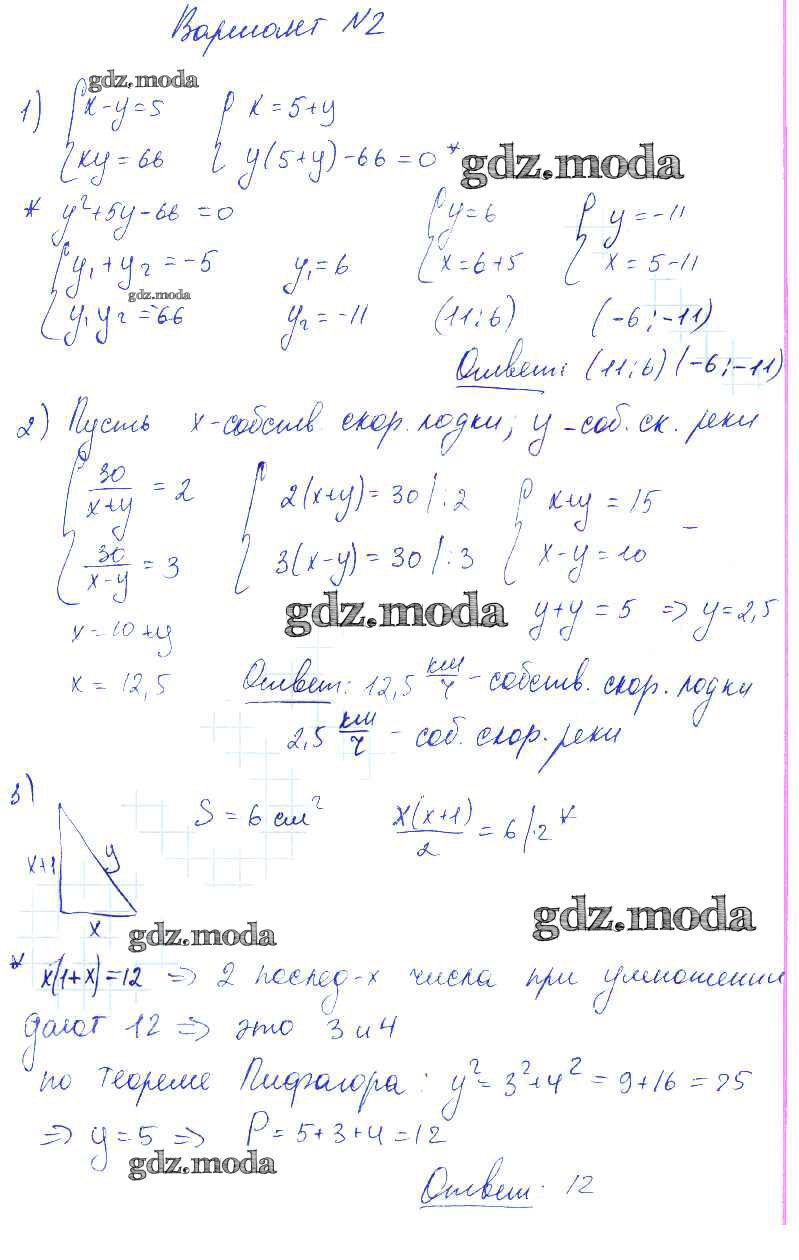 Вариант N2
gdz.moda
1) {x-y=5 {x=5+y
{xy=66 {y(5+y)-66=0*
gdz.moda
* y²+5y-66=0 {y=6 {y=-11
{y₁+y₂=-5 y₁=6 {x=6+5 {x=5-11
gdz.moda
{y₁y₂=-66 y₂=-11 (11;6) (-6;-11)
Ответ: (11;6) (-6;-11)
2) Пусть x-собств. скор. лодки; y-соб. ск. реки
{30/(x+y) = 2 {2(x+y)=30 /:2 {x+y=15
{30/(x-y) = 3 {3(x-y)=30 /:3 {x-y=10 -
gdz.moda
x=10+y y+y=5 => y=2,5
x=12,5 Ответ: 12,5 км/ч - собств. скор. лодки
2,5 км/ч - соб. скор. реки
3)
S=6 см² x(x+1)/2 = 6 /·2*
x+1 y
x
gdz.moda
gdz.moda
* x(1+x)=12 => 2 послед-х числа при умножении
дают 12 => это 3 и 4
по теореме Пифагора: y²=3²+4²=9+16=25
=> y=5 => P=5+3+4=12
gdz.moda
Ответ: 12